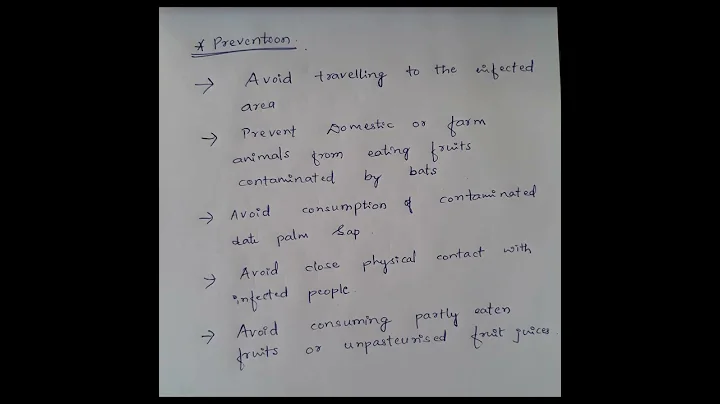 * Prevention.
→ Avoid travelling to the infected
area
→ Prevent Domestic or farm
animals from eating fruits
contaminated by bats
→ Avoid consumption of contaminated
date palm sap.
→ Avoid close physical contact with
infected people.
→ Avoid consuming partly eaten
fruits or unpasteurised fruit juices.